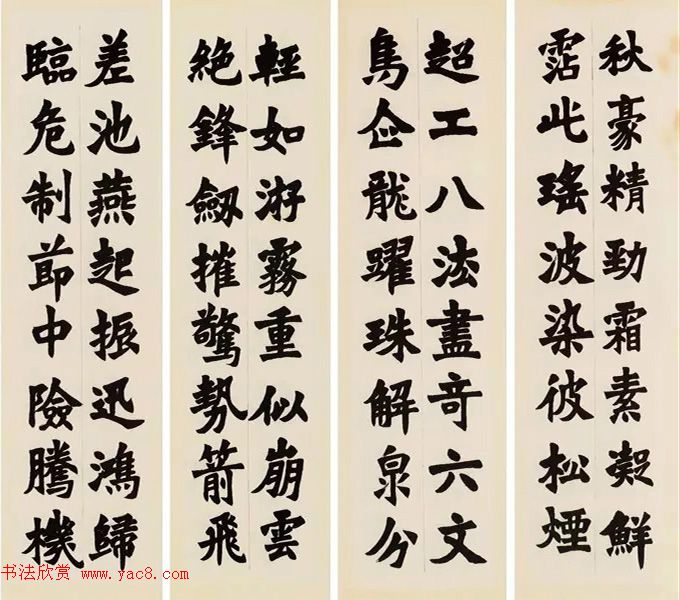 秋豪精勁霜素凝鮮
霑此瑤波染彼松煙
超工八法盡竒六文
鳥企龍躍珠解泉分
輕如游霧重似崩雲
絕鋒劔摧驚勢箭飛
差池燕起振迅鴻歸
臨危制莭中險騰機
书法欣赏 www.yac8.com